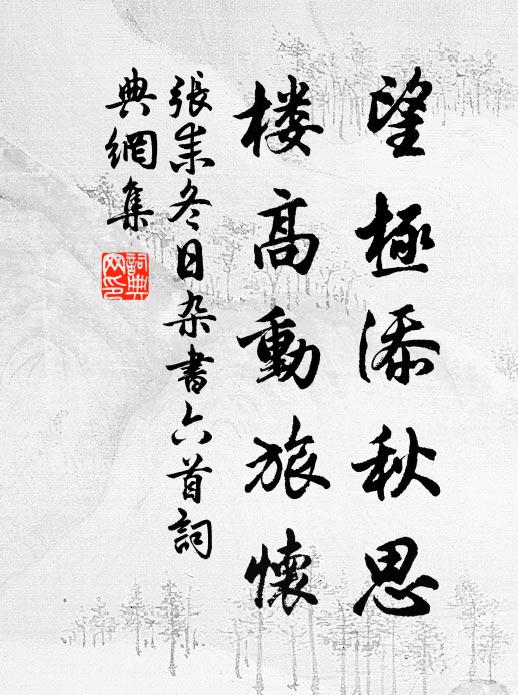 望極添秋思
楼高動旅懷
張耒冬日杂書六首詞
典網集
詞典
网印